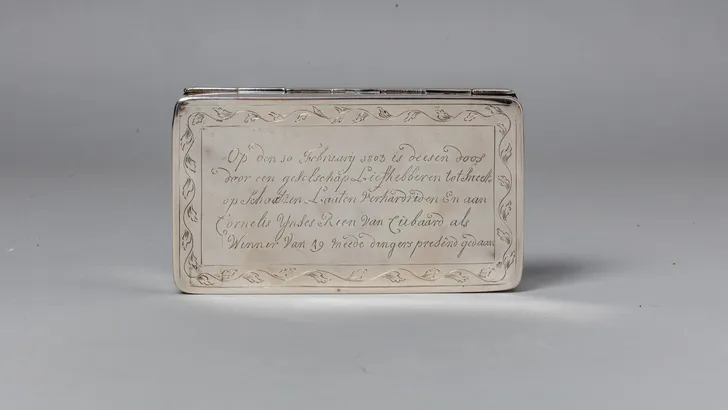 Op den 10 February 1803 is deesen doos
door een geselschap Liefhebberen tot Sneek
op Schaatzen Laaten verhardriden En aan
Cornelis Ynses Reen van Cubaard als
Winner Van 49 meede dingers presend gedaan